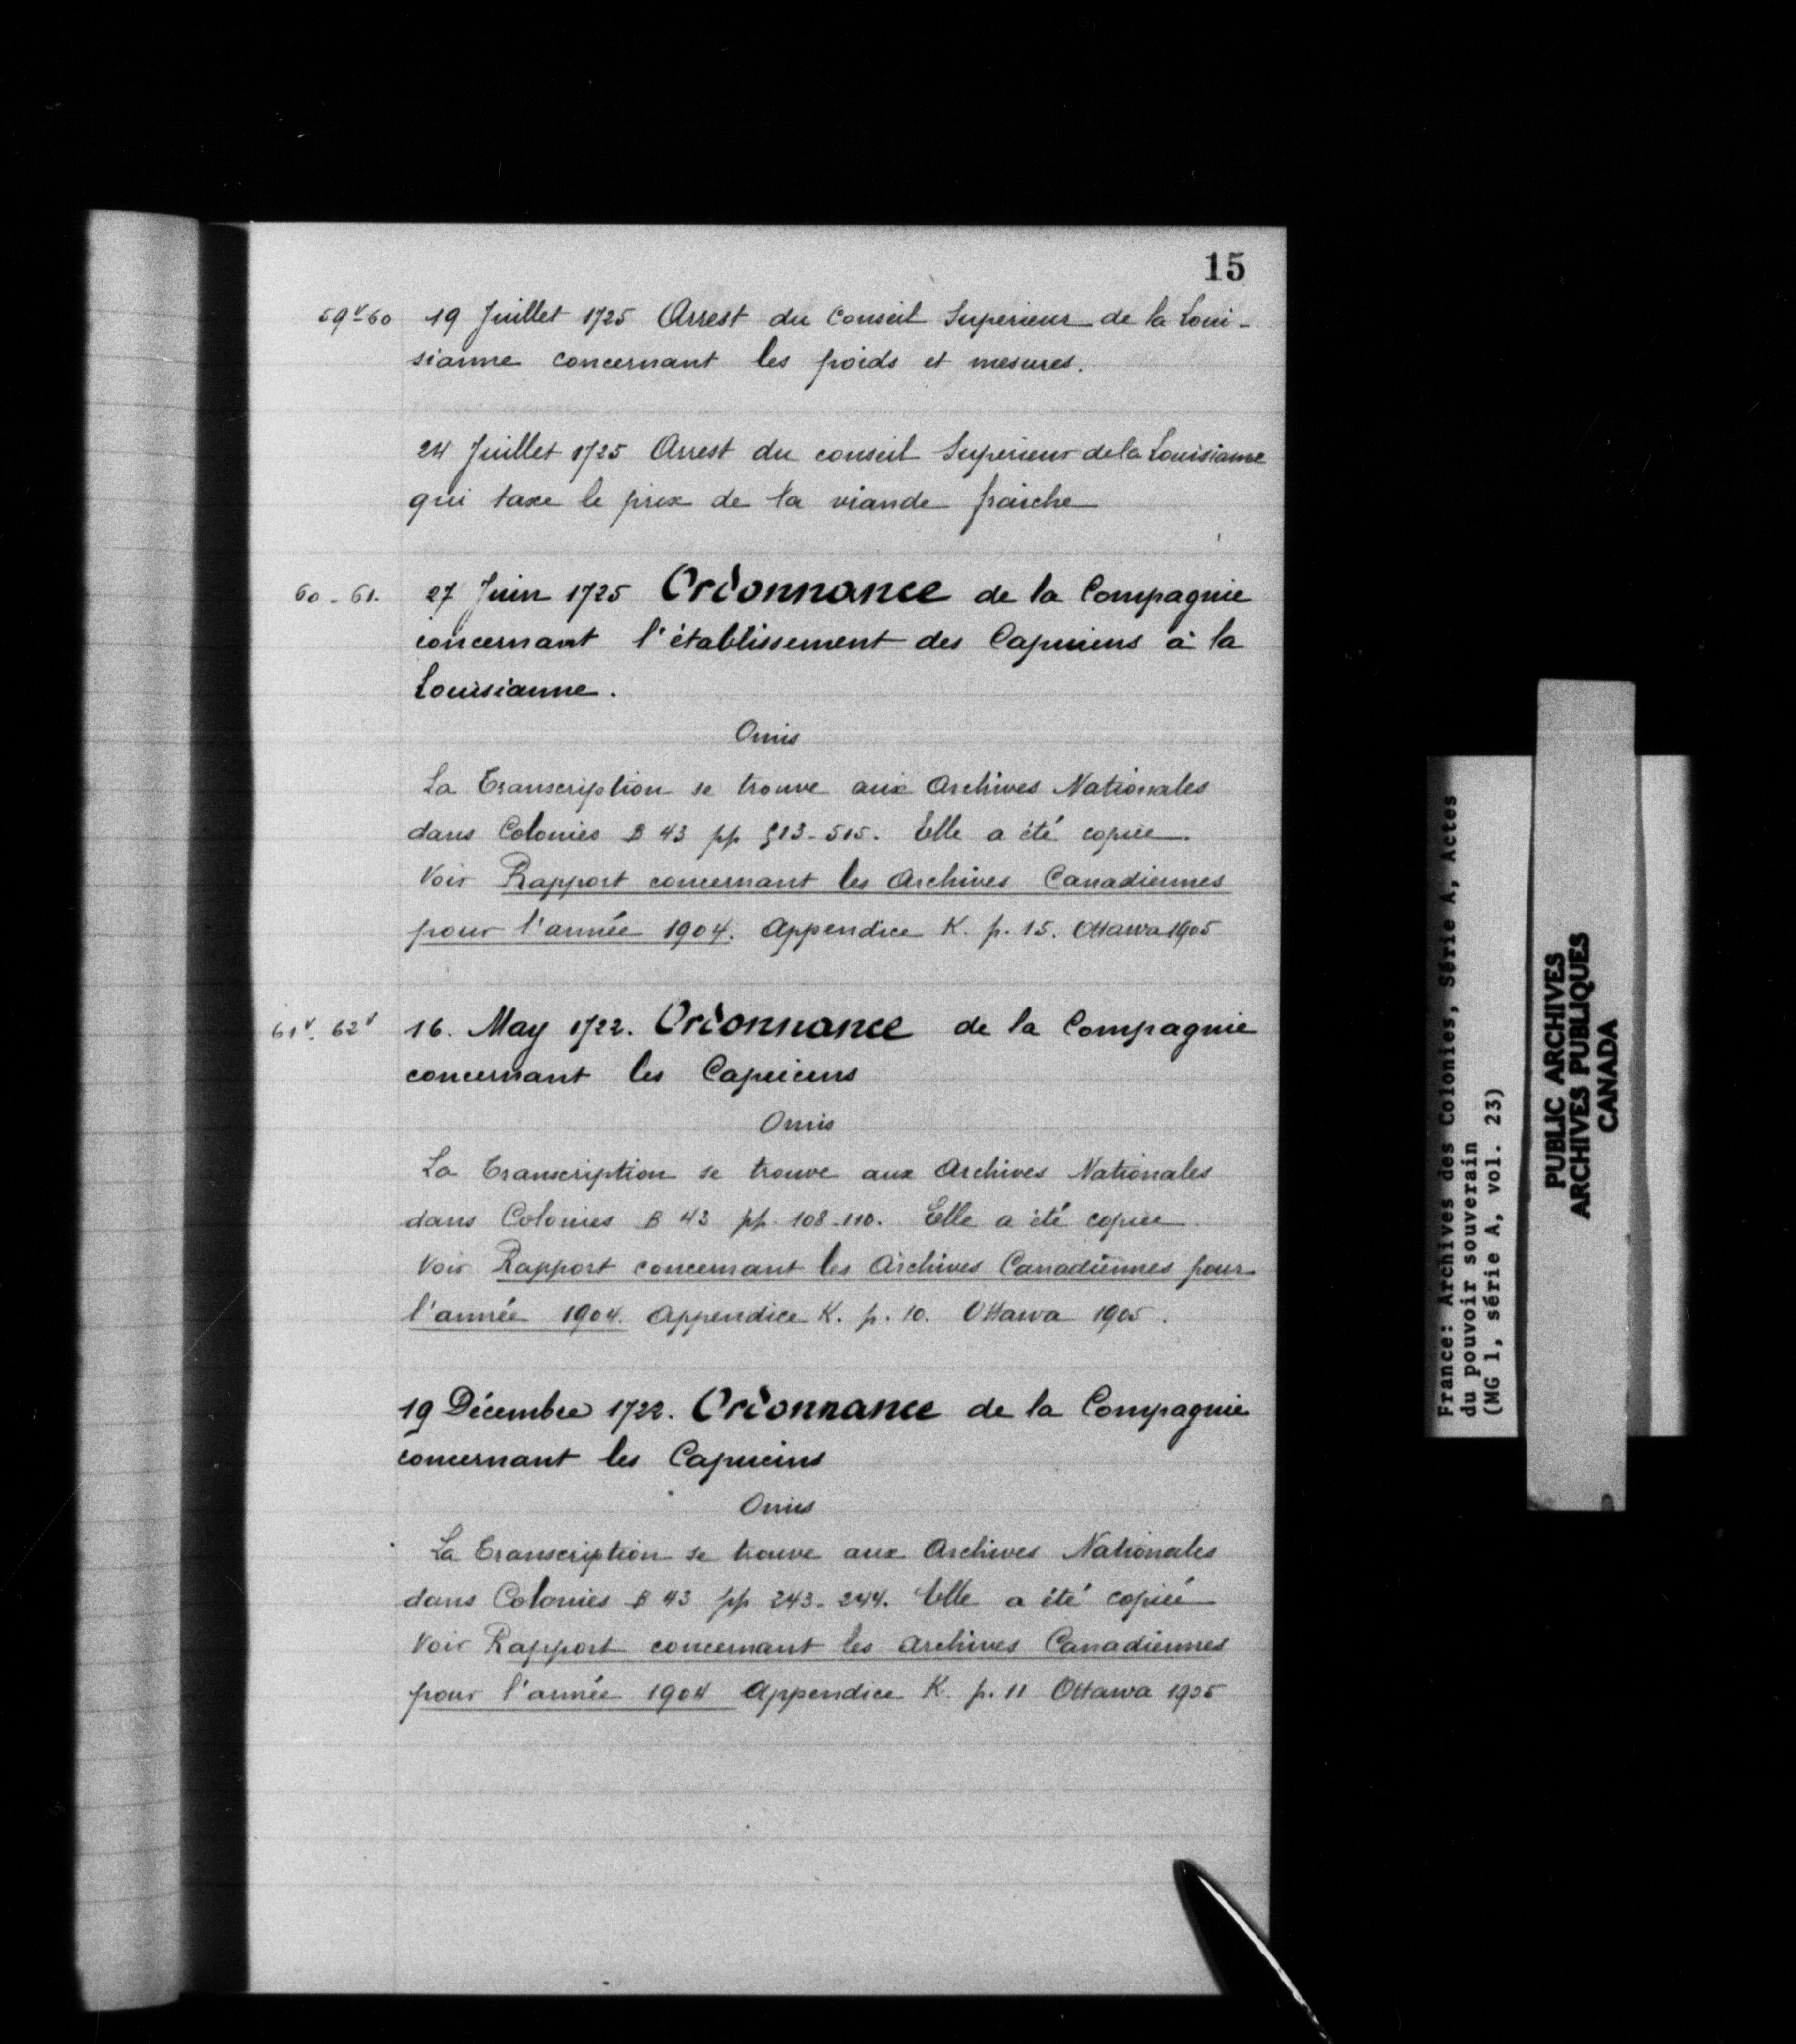 15
59v-60 19 Juillet 1725 Arrest du Conseil Superieur de la Loui-
sianne concernant les poids et mesures.
24 Juillet 1725 Arrest du conseil Superieur de la Louisianne
qui taxe le prix de la viande fraiche
60-61. 27 Juin 1725 Ordonnance de la Compagnie
concernant l'établissement des Capucins à la
Louisianne.
Omis
La Transcription se trouve aux Archives Nationales
dans Colonies B 43 pp 513-515. Elle a été copiée.
Voir Rapport concernant les Archives Canadiennes
pour l'année 1904. Appendice K. p. 15. Ottawa 1905
61v-62v 16. May 1722. Ordonnance de la Compagnie
concernant les Capucins
Omis
La Transcription se trouve aux Archives Nationales
dans Colonies B 43 pp. 108-110. Elle a été copiée.
Voir Rapport concernant les Archives Canadiennes pour
l'année 1904. Appendice K. p. 10. Ottawa 1905.
19 Décembre 1722. Ordonnance de la Compagnie
concernant les Capucins
Omis
La Transcription se trouve aux Archives Nationales
dans Colonies B 43 pp 243-244. Elle a été copiée
Voir Rapport concernant les Archives Canadiennes
pour l'année 1904 Appendice K. p. 11 Ottawa 1905
France: Archives des Colonies, Série A, Actes
du pouvoir souverain
(MG 1, série A, vol. 23)
PUBLIC ARCHIVES
ARCHIVES PUBLIQUES
CANADA